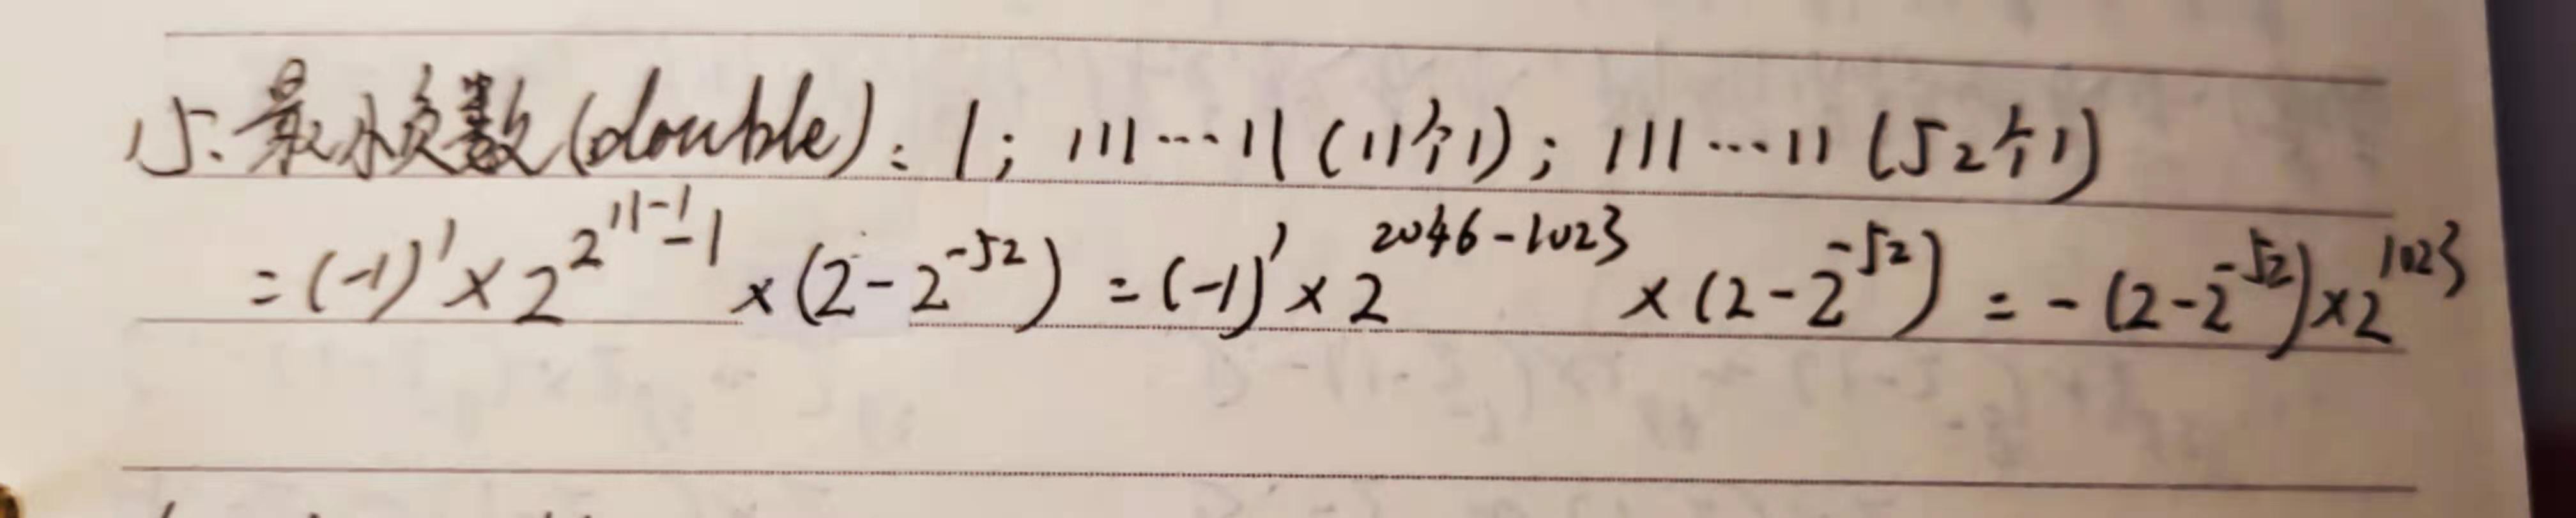 15.最小负数(double):1;111…11(11个1);111…11(52个1)
=(-1)¹×2^(2^(11-1)-1)×(2-2^(-52))=(-1)¹×2^(2046-1023)×(2-2^(-52))=-(2-2^(-52))×2^1023